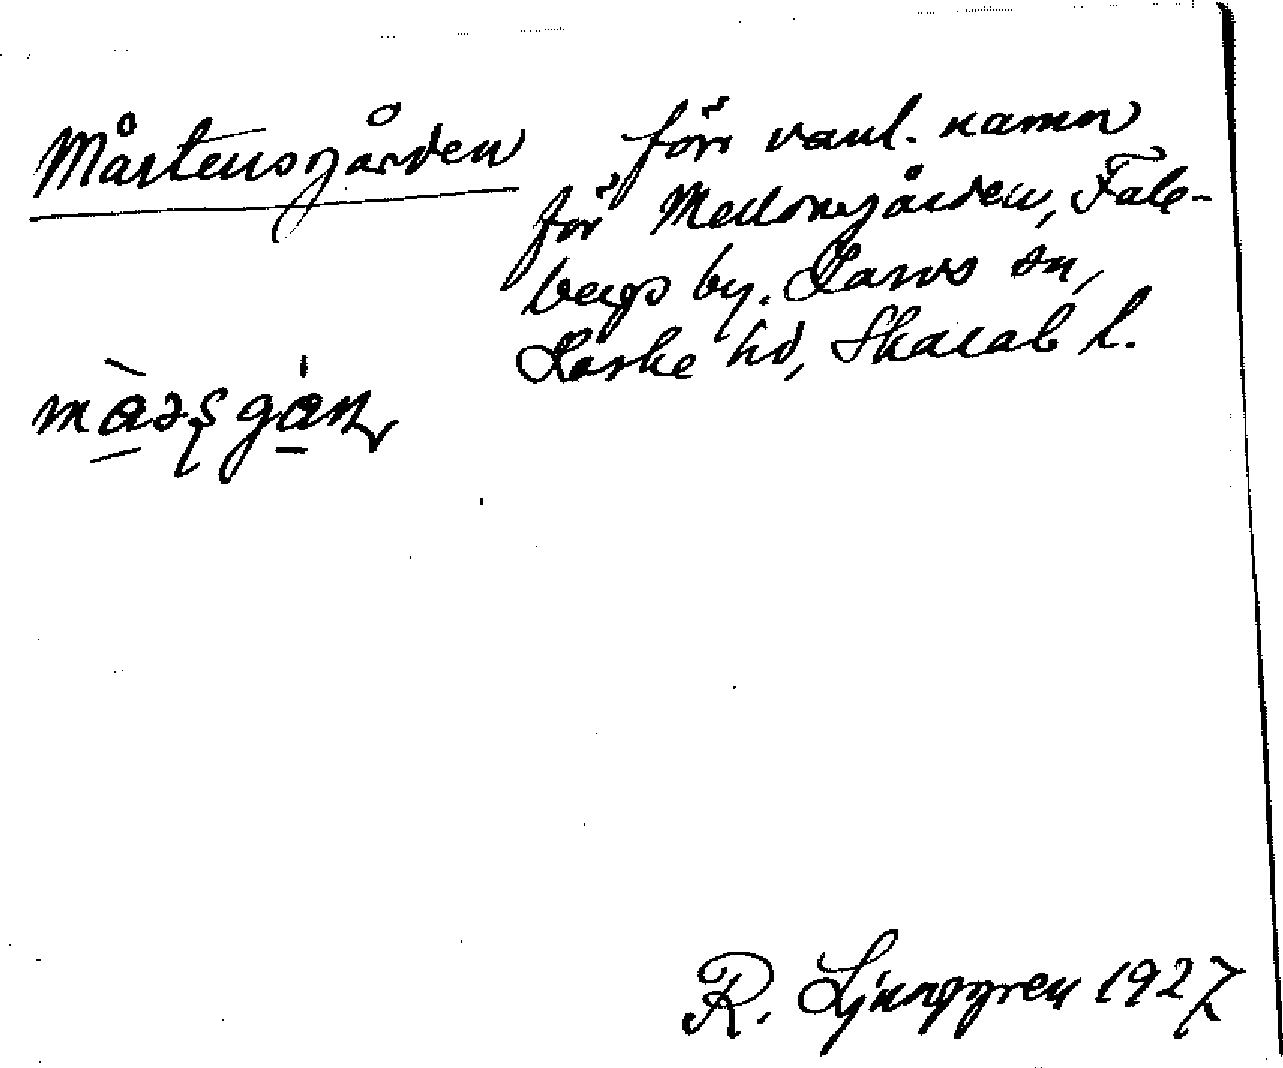 Mårtensgården
förr vanl. namn
för Mellomgården, Fale-
bergs by. Larvs sn,
Laske hd, Skarab l.
R. Ljunggren 1927